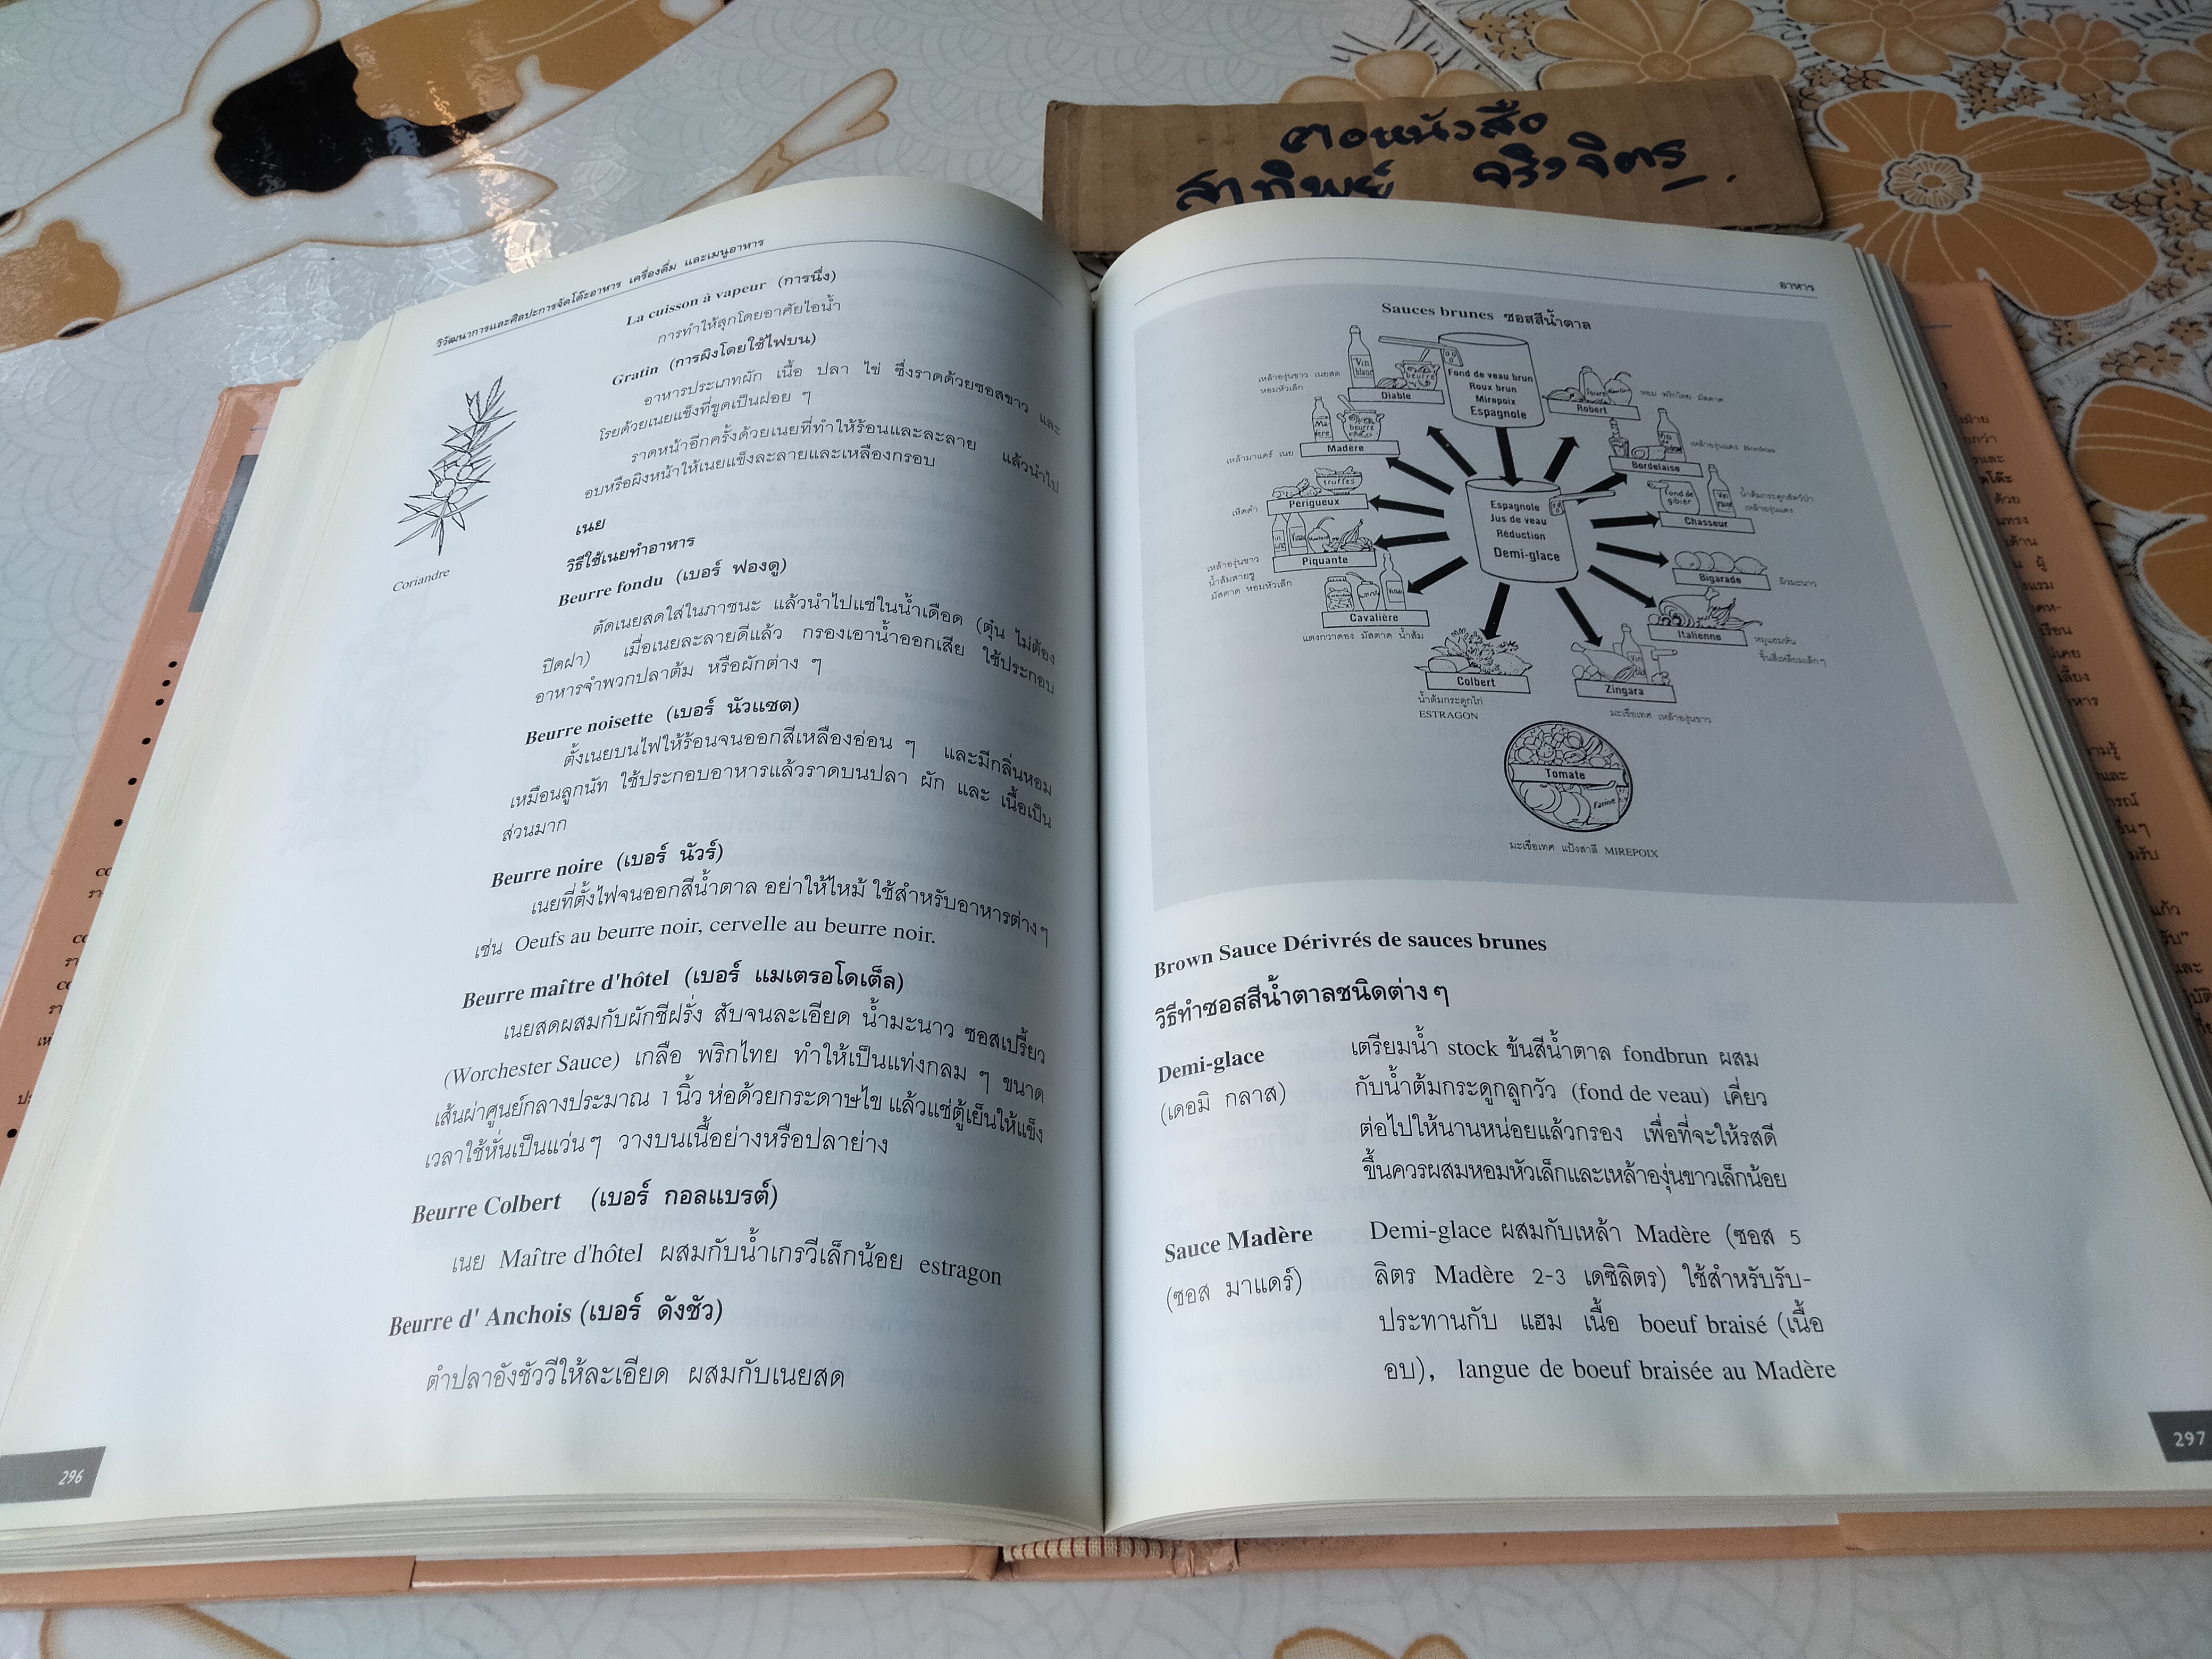 ตอหนังสือ
สาทิพย์ จริงจิตร
วิวัฒนาการและศิลปะการจัดโต๊ะอาหาร เครื่องดื่ม และเมนูอาหาร
La cuisson à vapeur (การนึ่ง)
การทำให้สุกโดยอาศัยไอน้ำ
Gratin (การผิงโดยใช้ไฟบน)
อาหารประเภทผัก เนื้อ ปลา ไข่ ซึ่งราดด้วยซอสขาว และ
โรยด้วยเนยแข็งที่ขูดเป็นฝอย ๆ
ราดหน้าอีกครั้งด้วยเนยที่ทำให้ร้อนและละลาย แล้วนำไป
อบหรือผิงหน้าให้เนยแข็งละลายและเหลืองกรอบ
Coriandre
เนย
วิธีใช้เนยทำอาหาร
Beurre fondu (เบอร์ ฟองดู)
ตัดเนยสดใส่ในภาชนะ แล้วนำไปแช่ในน้ำเดือด (ตุ๋น ไม่ต้อง
ปิดฝา) เมื่อเนยละลายดีแล้ว กรองเอาน้ำออกเสีย ใช้ประกอบ
อาหารจำพวกปลาต้ม หรือผักต่าง ๆ
Beurre noisette (เบอร์ นัวแซต)
ตั้งเนยบนไฟให้ร้อนจนออกสีเหลืองอ่อน ๆ และมีกลิ่นหอม
เหมือนลูกนัท ใช้ประกอบอาหารแล้วราดบนปลา ผัก และ เนื้อเป็น
ส่วนมาก
Beurre noire (เบอร์ นัวร์)
เนยที่ตั้งไฟจนออกสีน้ำตาล อย่าให้ไหม้ ใช้สำหรับอาหารต่างๆ
เช่น Oeufs au beurre noir, cervelle au beurre noir.
Beurre maître d'hôtel (เบอร์ แมเตรอโดเต็ล)
เนยสดผสมกับผักชีฝรั่ง สับจนละเอียด น้ำมะนาว ซอสเปรี้ยว
(Worchester Sauce) เกลือ พริกไทย ทำให้เป็นแท่งกลม ๆ ขนาด
เส้นผ่าศูนย์กลางประมาณ 1 นิ้ว ห่อด้วยกระดาษไข แล้วแช่ตู้เย็นให้แข็ง
เวลาใช้หั่นเป็นแว่นๆ วางบนเนื้อย่างหรือปลาย่าง
Beurre Colbert (เบอร์ กอลแบรต์)
เนย Maître d'hôtel ผสมกับน้ำเกรวีเล็กน้อย estragon
Beurre d' Anchois (เบอร์ ดังชัว)
ตำปลาอังชัววีให้ละเอียด ผสมกับเนยสด
296
อาหาร
Sauces brunes ซอสสีน้ำตาล
Fond de veau brun
Roux brun
Mirepoix
Espagnole
Vin blanc
beurre
เหล้าองุ่นขาว เนยสด
หอมหัวเล็ก
Diable
Robert
หอม พริกไทย มัสตาด
Madère
beurre
เหล้ามาแดร์ เนย
Bordelaise
เหล้าองุ่นแดง Bordeau
truffes
Périgueux
เห็ดดำ
Espagnole
Jus de veau
Réduction
Demi-glace
Fond de gibier
Chasseur
น้ำต้มกระดูกสัตว์ป่า
เหล้าองุ่นแดง
Piquante
เหล้าองุ่นขาว
น้ำส้มสายชู
มัสตาด หอมหัวเล็ก
Bigarade
ผิวมะนาว
Cavalière
แตงกวาดอง มัสตาด น้ำส้ม
Italienne
หมูแฮมหั่น
ชิ้นสี่เหลี่ยมเล็กๆ
Colbert
น้ำต้มกระดูกไก่
ESTRAGON
Vin
Zingara
มะเขือเทศ เหล้าองุ่นขาว
Tomate
Farine
มะเขือเทศ แป้งสาลี MIREPOIX
Brown Sauce Dérivrés de sauces brunes
วิธีทำซอสสีน้ำตาลชนิดต่างๆ
Demi-glace เตรียมน้ำ stock ข้นสีน้ำตาล fondbrun ผสม
(เดอมิ กลาส) กับน้ำต้มกระดูกลูกวัว (fond de veau) เคี่ยว
ต่อไปให้นานหน่อยแล้วกรอง เพื่อที่จะให้รสดี
ขึ้นควรผสมหอมหัวเล็กและเหล้าองุ่นขาวเล็กน้อย
Sauce Madère Demi-glace ผสมกับเหล้า Madère (ซอส 5
(ซอส มาแดร์) ลิตร Madère 2-3 เดซิลิตร) ใช้สำหรับรับ-
ประทานกับ แฮม เนื้อ boeuf braisé (เนื้อ
อบ), langue de boeuf braisée au Madère
297